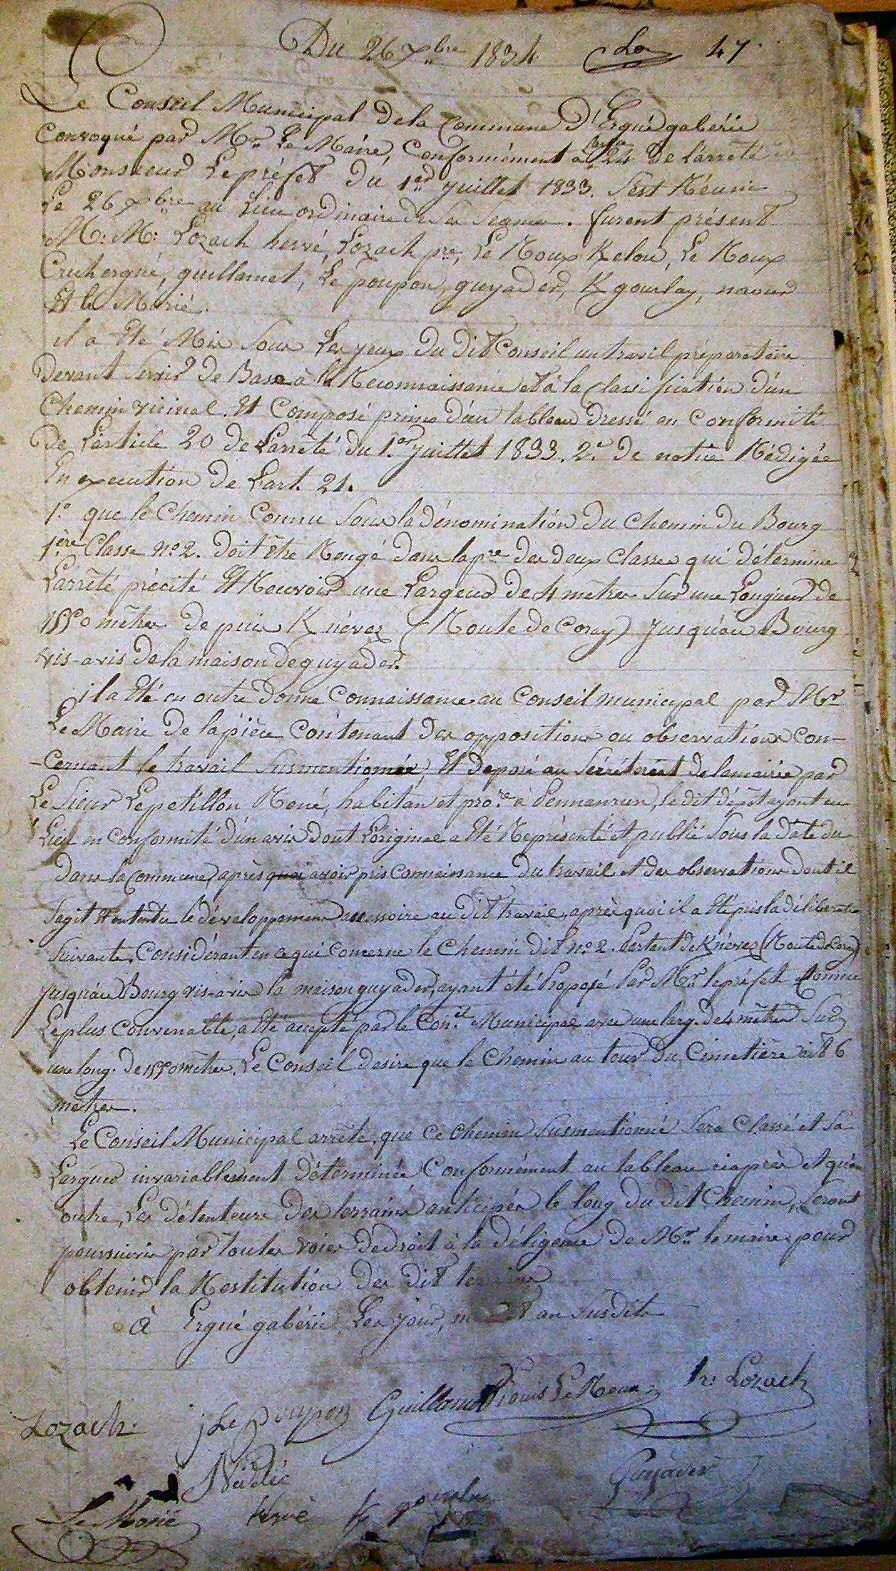 Du 26 Xbre 1834 47
Le Conseil Municipal de la Commune D'Ergué gabéric
Convoqué par Mr Le Maire, Conformément à l'art. 24 De L'arrêté
Monsieur Le préfet du 1er juillet 1833. S'est Réunie
Le 26 Xbre au Lieu ordinaire de Ses Séances. furent présent
M. M. Lozach hervé, Lozach pre, Le Roux Kelou, Le Roux
Cruchergué, guillamet, Le poupon, guyader, K gourlay, naour
Et le Marié.
il a Eté Mis Sous Les yeux du dit Conseil un travail préparatoire
Devant Servir De Base à la Reconnaissance et à la Classification d'un
Chemin vicinal. Et Composé primo d'un tableau Dressé en Conformité
De L'article 20 de L'arrêté du 1er Juillet 1833. 2° De notice Rédigée
En execution De L'art. 21.
1° que le Chemin Connu Sous la dénomination du Chemin du Bourg
1ère Classe no 2. doit être Rengé dans la pre des deux Classes qui détermine
L'arrêté précité Et Recevoir une Largeur De 4 mètres Sur une Longueur de
1550 mètres De puis Knévez (Route de Coray) Jusqu'au Bourg
vis-avis de la maison de guyader.
il a Eté en outre Donné Connaissance au Conseil municipal par Mr
Le Maire De la pièce Contenant Des oppositions ou observations Con-
-cernant le travail Susmentionnée Et Déposé au Sécrétereat De la mairie par
Le Sieur Le petillon René, habitan et prore à Pennanrun, le dit dépôt ayant eu
Lieu en Conformité d'un avis Dont L'original a Eté Représenté et publié Sous la Date du
dans la Commune, après quoi avoir pris Connaissance du travail et des observations dont il
S'agit Et entendu le développement accessoire au dit travail, après quoi il a Eté pris la délibération
Suivante, Considérant en ce qui Concerne le Chemin dit no 2. Partant de Knévez (Route de Coray)
Jusqu'au Bourg vis-avis la maison guyader, ayant été Proposé Par Mr le préfet Comme
Le plus Convenable, a Eté accepté par le Coneil Municipal avec une larg. de 4 mètres Sur
une long. De 1550 mètres. Le Conseil desire que le Chemin au tour Du Cimetière ait 6
mètres.
Le Conseil Municipal arrête, que Ce Chemin Susmentionné Sera Classé et Sa
Largeur invariablement Déterminée Conformément au tableau ciaprès et qu'en
outre, Les détenteurs Des terrains anticipés le long du dit Chemin, Seront
poursuivis par toutes voies De droit à la déligence De Mr le maire pour
obtenir la Restitution Des dit terrains
à Ergué gabéric Les jour, mois Et an Susdits
Lozach J Le Poupon Guillamet Louis Le Roux hr. Lozach
Nédélec Guyader
Le Marié hervé K gourlay